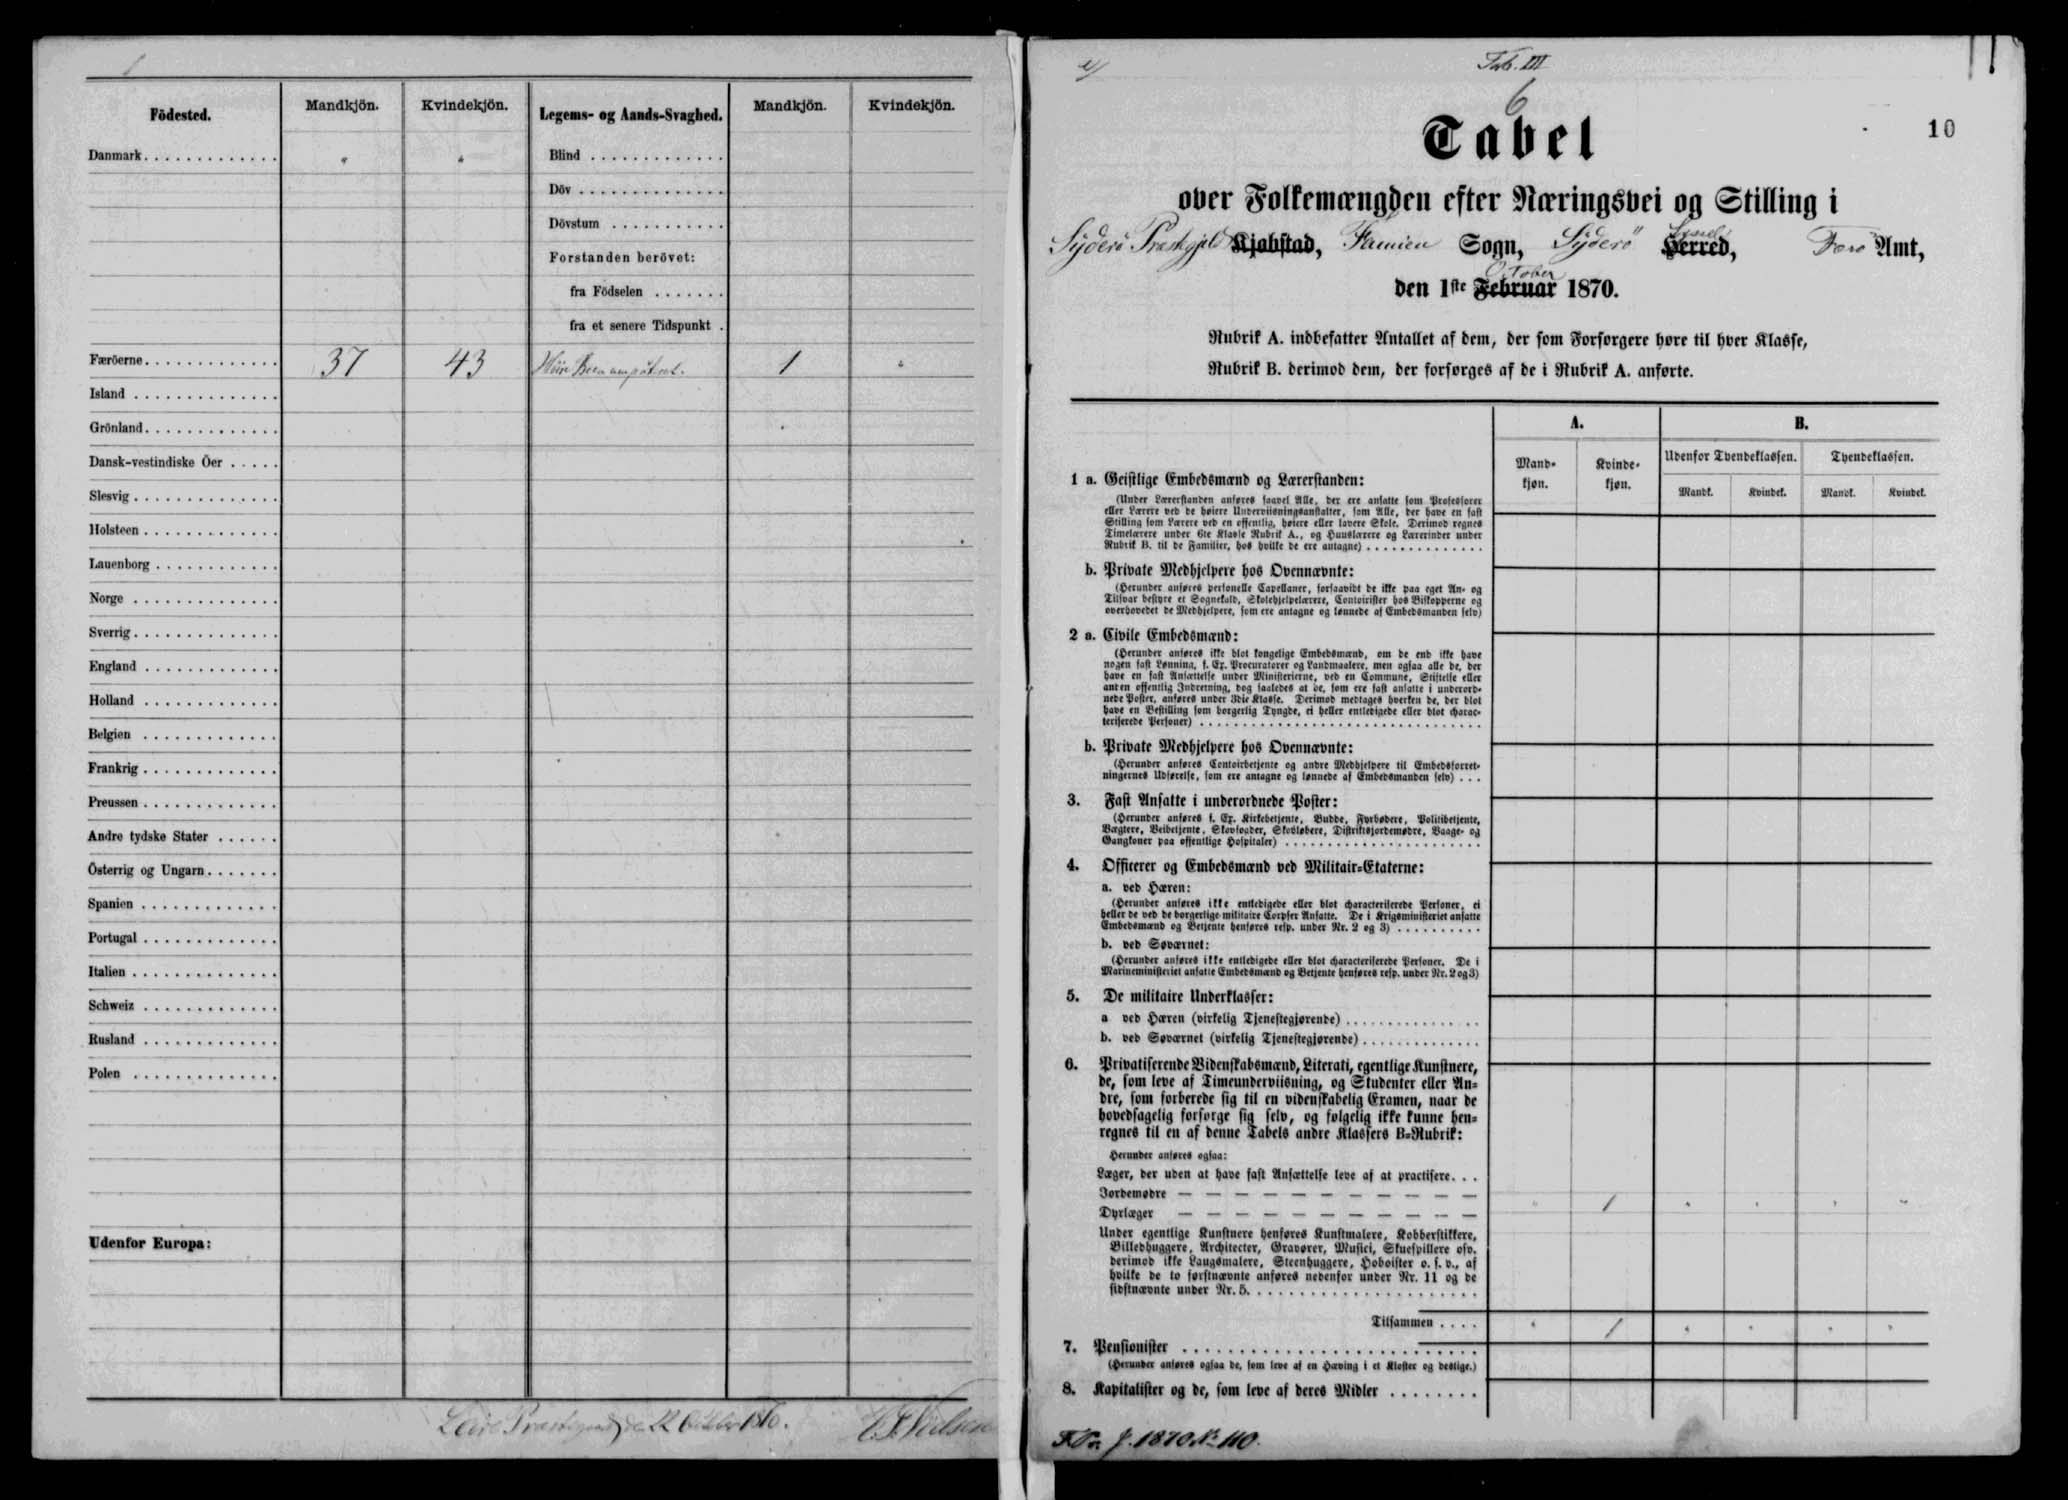 Födested.
Mandkjön.
Kvindekjön.
Legems- og Aands-Svaghed.
Mandkjön.
Kvindekjön.
Danmark . . . . . . . . . . . . . " "
Blind . . . . . . . . . . . . .
Döv . . . . . . . . . . . . . .
Dövstum . . . . . . . . . . .
Forstanden berövet:
fra Födselen . . . . . . .
fra et senere Tidspunkt .
Færöerne . . . . . . . . . . . . . 37 43 Höire Been amputeret. 1 "
Island . . . . . . . . . . . . . .
Grönland . . . . . . . . . . . . .
Dansk-vestindiske Öer . . . . .
Slesvig . . . . . . . . . . . . . .
Holsteen . . . . . . . . . . . . .
Lauenborg . . . . . . . . . . . .
Norge . . . . . . . . . . . . . .
Sverrig . . . . . . . . . . . . . .
England . . . . . . . . . . . . .
Holland . . . . . . . . . . . . .
Belgien . . . . . . . . . . . . .
Frankrig . . . . . . . . . . . . .
Preussen . . . . . . . . . . . . .
Andre tydske Stater . . . . . .
Österrig og Ungarn . . . . . . .
Spanien . . . . . . . . . . . . .
Portugal . . . . . . . . . . . . .
Italien . . . . . . . . . . . . . .
Schweiz . . . . . . . . . . . . .
Rusland . . . . . . . . . . . . .
Polen . . . . . . . . . . . . . .
Udenfor Europa:
Præstegaard d. 22 October 1870.
Nielsen
Tab. III
6
10
Tabel
over Folkemængden efter Næringsvei og Stilling i
Syderø Præstegjeld Kjøbstad, Famien Sogn, Syderø Syssel Herred, Færø Amt,
October
den 1ste Februar 1870.
Rubrik A. indbefatter Antallet af dem, der som Forsørgere høre til hver Klasse,
Rubrik B. derimod dem, der forsørges af de i Rubrik A. anførte.
A.
B.
Mand-
kjøn.
Kvinde-
kjøn.
Udenfor Tyendeklassen.
Tyendeklassen.
Mandk.
Kvindek.
Mandk.
Kvindek.
1 a. Geistlige Embedsmænd og Lærerstanden:
(Under Lærerstanden anføres saavel Alle, der ere ansatte som Professorer
eller Lærere ved de høiere Underviisningsanstalter, som Alle, der have en fast
Stilling som Lærere ved en offentlig, høiere eller lavere Skole. Derimod regnes
Timelærere under 6te Klasse Rubrik A., og Huuslærere og Lærerinder under
Rubrik B. til de Familier, hos hvilke de ere antagne) . . . . . . . . . . . . . .
b. Private Medhjelpere hos Ovennævnte:
(Herunder anføres personelle Capellaner, forsaavidt de ikke paa eget An- og
Tilsvar bestyre et Sognekald, Skolehjelpelærere, Contoirister hos Biskopperne og
overhovedet de Medhjelpere, som ere antagne og lønnede af Embedsmanden selv)
2 a. Civile Embedsmænd:
(Herunder anføres ikke blot kongelige Embedsmænd, om de end ikke have
nogen fast Lønning, f. Ex. Procuratorer og Landmaalere, men ogsaa alle de, der
have en fast Ansættelse under Ministerierne, ved en Commune, Stiftelse eller
anden offentlig Indretning, dog saaledes at de, som ere fast ansatte i underord-
nede Poster, anføres under 3die Klasse. Derimod medtages hverken de, der blot
have en Bestilling som borgerlig Tyngde, ei heller entledigede eller blot charac-
teriserede Personer) . . . . . . . . . . . . . . . . . . . . . . . . . . . . . . . .
b. Private Medhjelpere hos Ovennævnte:
(Herunder anføres Contoirbetjente og andre Medhjelpere til Embedsforret-
ningernes Udførelse, som ere antagne og lønnede af Embedsmanden selv) . . .
3. Fast Ansatte i underordnede Poster:
(Herunder anføres f. Ex. Kirkebetjente, Budde, Fyrbødere, Politibetjente,
Vægtere, Veibetjente, Skovfogder, Skovløbere, Distriktsjordemødre, Vaage- og
Gangkoner paa offentlige Hospitaler) . . . . . . . . . . . . . . . . . . . . . .
4. Officerer og Embedsmænd ved Militair-Etaterne:
a. ved Hæren:
(Herunder anføres ikke entledigede eller blot characteriserede Personer, ei
heller de ved de borgerlige militaire Corpser Ansatte. De i Krigsministeriet ansatte
Embedsmænd og Betjente henføres resp. under Nr. 2 og 3) . . . . . . . . . .
b. ved Søværnet:
(Herunder anføres ikke entledigede eller blot characteriserede Personer. De i
Marineministeriet ansatte Embedsmænd og Betjente henføres resp. under Nr. 2 og 3)
5. De militaire Underklasser:
a ved Hæren (virkelig Tjenestegjørende) . . . . . . . . . . . . . . .
b. ved Søværnet (virkelig Tjenestegjørende) . . . . . . . . . . . . .
6. Privatiserende Videnskabsmænd, Literati, egentlige Kunstnere,
de, som leve af Timeunderviisning, og Studenter eller An-
dre, som forberede sig til en videnskabelig Examen, naar de
hovedsagelig forsørge sig selv, og følgelig ikke kunne hen-
regnes til en af denne Tabels andre Klassers B-Rubrik:
Herunder anføres ogsaa:
Læger, der uden at have fast Ansættelse leve af at practisere . . .
Jordemødre — — — — — — — — — — — " 1 " " " "
Dyrlæger — — — — — — — — — — —
Under egentlige Kunstnere henføres Kunstmalere, Kobberstikkere,
Billedhuggere, Architecter, Gravører, Musici, Skuespillere osv.
derimod ikke Laugsmalere, Steenhuggere, Hoboister o. s. v., af
hvilke de to førstnævnte anføres nedenfor under Nr. 11 og de
sidstnævnte under Nr. 5. . . . . . . . . . . . . . . . . . . . . .
Tilsammen . . . . " 1 " " " "
7. Pensionister . . . . . . . . . . . . . . . . . . . . . . . . . .
(Herunder anføres ogsaa de, som leve af en Hæving i et Kloster og deslige.)
8. Kapitalister og de, som leve af deres Midler . . . . . . . .
J. 1870 No 110.